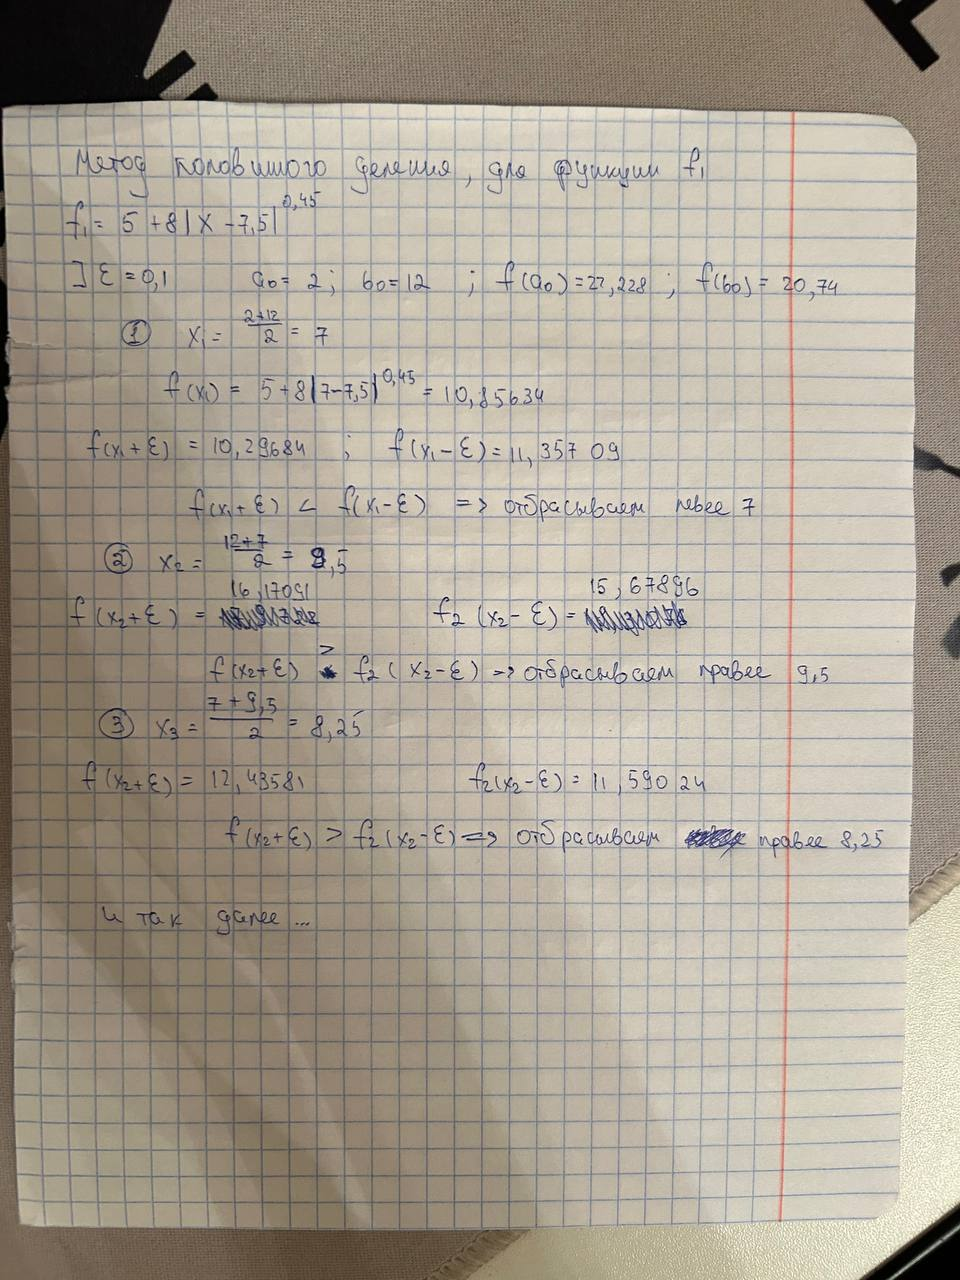 Метод половинного деления, для функции f₁
f₁ = 5 + 8|x - 7,5|^0,45
] ε = 0,1 a₀ = 2; b₀ = 12 ; f(a₀) = 22,228 ; f(b₀) = 20,74
① x₁ = (2+12)/2 = 7
f(x₁) = 5 + 8|7-7,5|^0,45 = 10,85634
f(x₁ + ε) = 10,29684 ; f(x₁ - ε) = 11,35709
f(x₁ + ε) < f(x₁ - ε) => отбрасываем левее 7
② x₂ = (12+7)/2 = 9,5
f(x₂ + ε) = 16,17091 f₂(x₂ - ε) = 15,67896
f(x₂+ε) > f₂(x₂-ε) => отбрасываем правее 9,5
③ x₃ = (7+9,5)/2 = 8,25
f(x₂+ε) = 12,43581 f₂(x₂-ε) = 11,59024
f(x₂+ε) > f₂(x₂-ε) => отбрасываем правее 8,25
и так далее ...